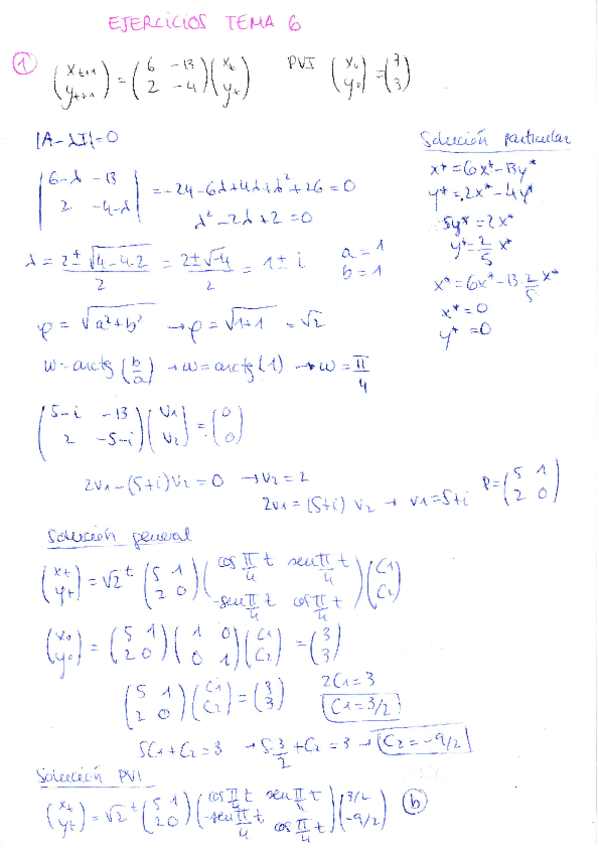 EJERCICIOS TEMA 6
① (x_{t+1} y_{t+1}) = (6 -13 2 -4)(x_t y_t) PVI (x_0 y_0) = (3 3)
|A-λI|=0
|6-λ -13 2 -4-λ| = -24-6λ+4λ+λ²+26=0
λ²-2λ+2=0
λ = 2±√4-4·2 / 2 = 2±√-4 / 2 = 1±i a=1 b=1
ρ = √a²+b² → ρ = √1+1 = √2
w=arctg (b/a) → w=arctg(1) → w = π/4
(5-i -13 2 -5-i)(v1 v2) = (0 0)
2v1-(5+i)v2=0 → v2=2
2v1=(5+i) v2 → v1=5+i P=(5 1 2 0)
Solución particular
x*=6x*-13y*
y*=2x*-4y*
5y*=2x*
y*=2/5 x*
x*=6x*-13·2/5 x*
x*=0
y*=0
Solución general
(x_t y_t) = √2^t (5 1 2 0)(cos π/4 t sen π/4 t -sen π/4 t cos π/4 t)(C1 C2)
(x_0 y_0) = (5 1 2 0)(1 0 0 1)(C1 C2) = (3 3)
(5 1 2 0)(C1 C2) = (3 3) 2C1=3
C1=3/2
5C1+C2=3 → 5·3/2+C2=3 → C2=-9/2
Solución PVI
(x_t y_t) = √2^t (5 1 2 0)(cos π/4 t sen π/4 t -sen π/4 t cos π/4 t)(3/2 -9/2) ⓑ